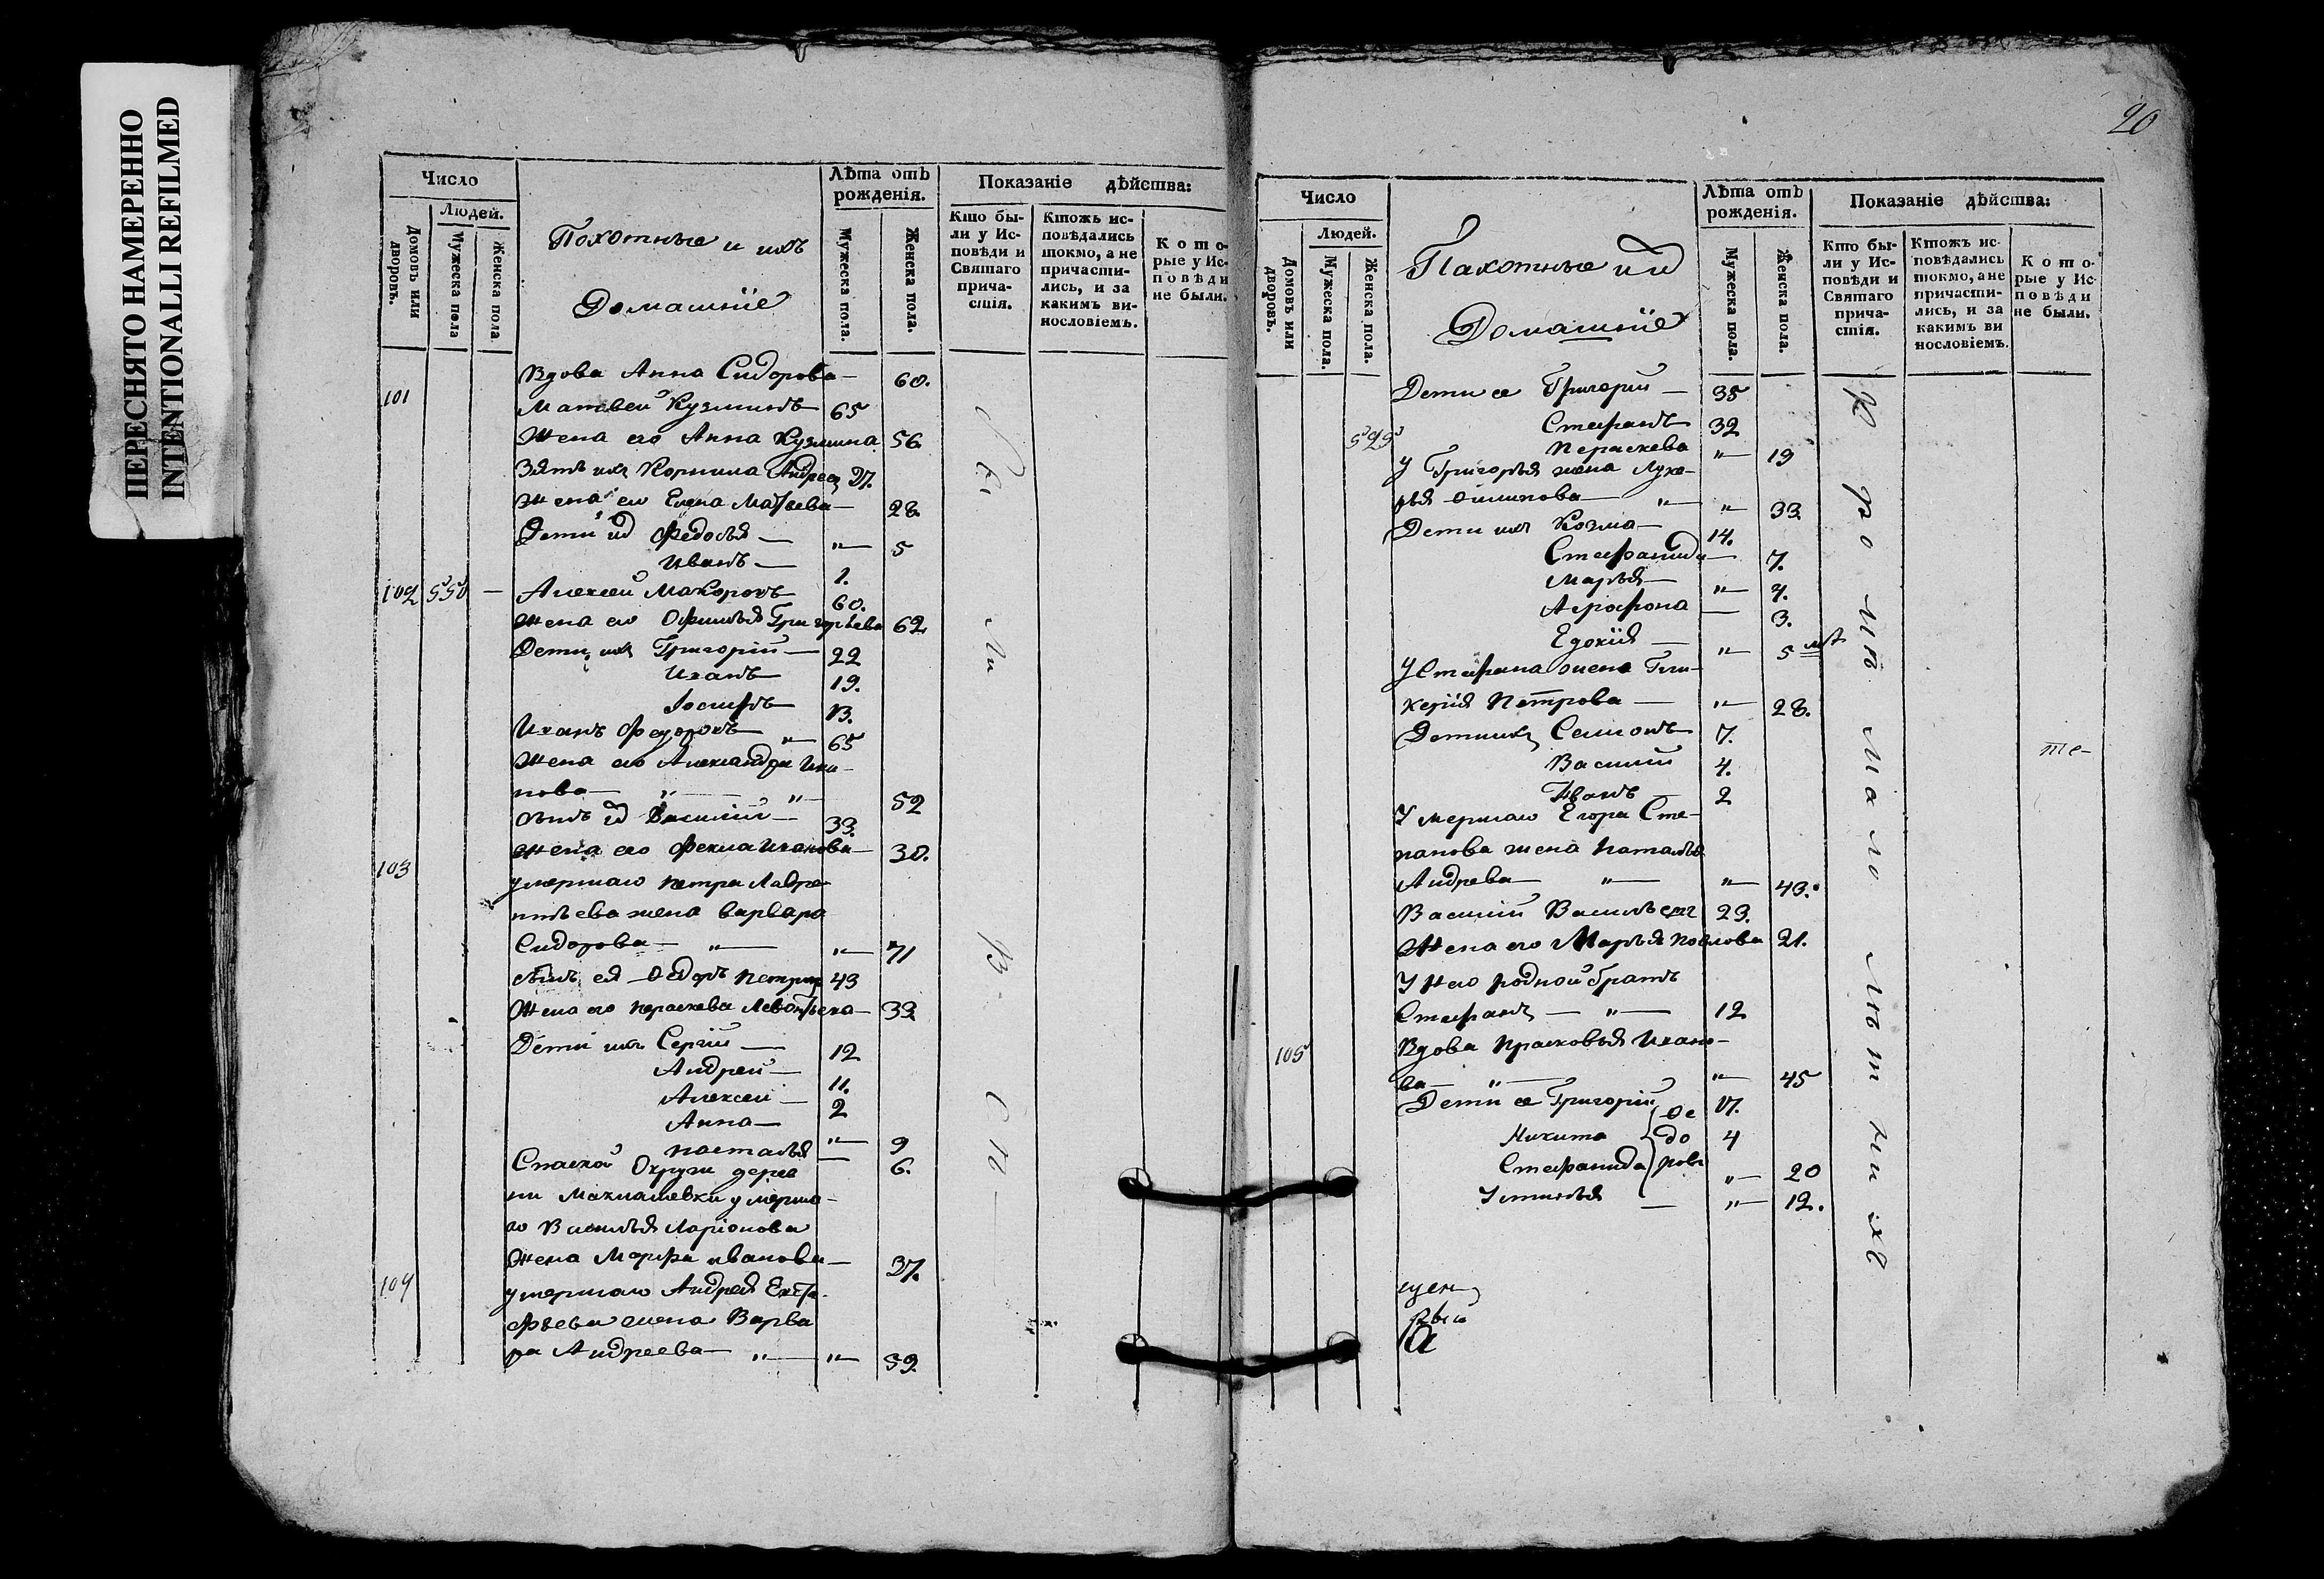 ПЕРЕСНЯТО НАМЕРЕННО
INTENTIONALLI REFILMED
Число
Людей.
Домовъ или дворовъ.
Мужеска пола
Женска пола
Похотные и ихъ
Домашніе
Лѣта отъ рожденія.
Мужеска пола.
Женска пола.
Показаніе дѣйства:
Кто бы-
ли у Ис-
повѣди и
Святаго
прича-
стія.
Ктожъ ис-
повѣдались
токмо, а не
причасти-
лись, и за
какимъ ви-
нословіемъ.
Кото-
рые у Ис-
повѣди
не были.
Вдова Анна Сидорова — 60.
101
Матвеи Кузминъ 65
Жена его Анна Кузмина 56
Зять ихъ Корнила Андреев 27.
Жена его Елена Матвева — 28.
Дети их Федосья — " — 5
Иванъ — 1.
102 550 — Алексеи Макоровъ 60.
Жена его Офимья Григорьева 62
Дети ихъ Григорій — 22
Иванъ 19.
Іосифъ 13.
Иванъ Федоровъ " — 65
Жена его Александра Ива-
нова — " — " — 52
сынъ их Василій — 33.
Жена его Фекла Иванова — 30.
103
умершаго Петра Лавре-
нтьева жена варвара
Сидорова — " — " — 71
сынъ ея Федоръ Петров 43
Жена его Пераскева Левонтьева — 33
Дети ихъ Сергій — 12
Андреи — 11.
Алексеи — 2
Анна — " — 9
Наталья — 6.
Спаской Округи дерев
ни Маклашевки умерша-
го Василья Ларіонова
Жена Марфа иванова — 37.
104
умершаго Андрея Евста-
фьева жена Варва
ра Андреева — " — " — 59.
20
Число
Людей.
Домовъ или дворовъ.
Мужеска пола.
Женска пола.
Пахотные и их
Домашніе
Лѣта отъ рожденія.
Мужеска пола.
Женска пола.
Показаніе дѣйства:
Кто бы-
ли у Ис-
повѣди и
Святаго
прича-
стія.
Ктожъ ис-
повѣдались
токмо, а не
причасти-
лись, и за
какимъ ви
нословіемъ.
Кото-
рые у Ис-
повѣди
не были.
Дети ее Григорій — 35
Стефанъ 32
525 Пераскева " — 19
У Григорья жена Луке-
рья Филипова — " — " — 33.
Дети ихъ Козма — 14.
Стефанида — 7.
Марья — " — 4.
Агрофона — 3.
Едокія — " — 5
У Стефана жена Гли-
керія Петрова — " — 28.
Дети ихъ Семионъ 7.
Василій 4.
Иванъ — 2
Умершаго Егора Сте-
панова жена Наталья
Андрева — " — " — 43.
Василій Васильевъ 23.
Жена его Марья Павлова 21.
У Него родной братъ
Стефанъ — " — 12
105 Вдова Прасковья Ивано-
ва — " — " — 45
Дети ее Григорій 17.
Никита 4
Стефанида " — 20
Федоровы
Устинья — " — 12.
кромѣ малолѣтнихъ
те-